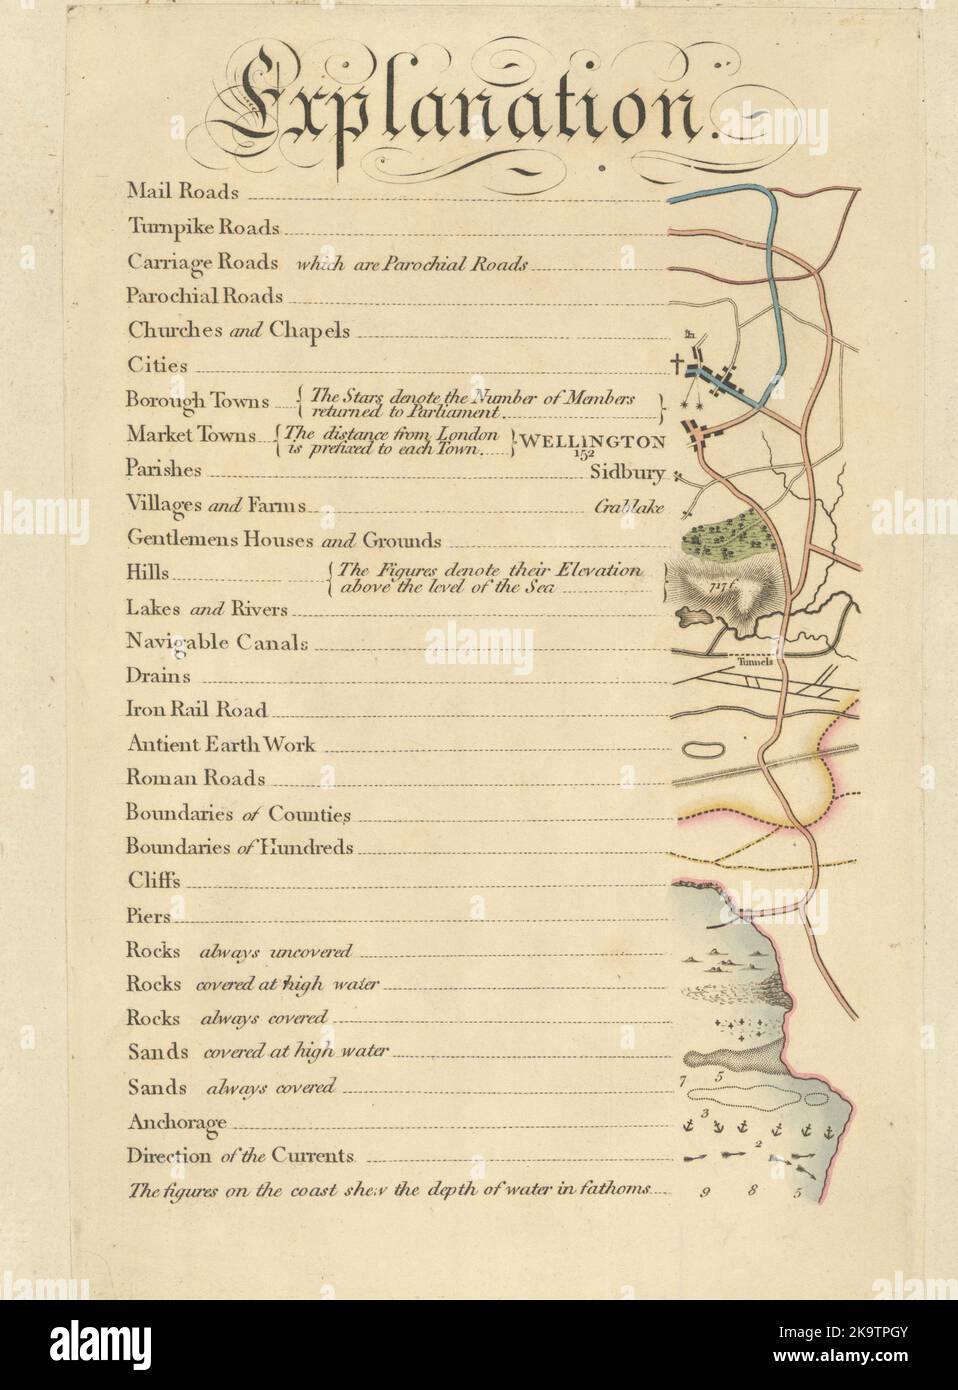 Explanation.
Mail Roads
Turnpike Roads
Carriage Roads which are Parochial Roads
Parochial Roads
Churches and Chapels
Cities
Borough Towns { The Stars denote the Number of Members
returned to Parliament. }
Market Towns { The distance from London
is prefixed to each Town. } WELLINGTON
152
Parishes Sidbury
Villages and Farms Crablake
Gentlemens Houses and Grounds
Hills { The Figures denote their Elevation
above the level of the Sea } 717 f.
Lakes and Rivers
Navigable Canals
Tunnels
Drains
Iron Rail Road
Antient Earth Work
Roman Roads
Boundaries of Counties
Boundaries of Hundreds
Cliffs
Piers
Rocks always uncovered
Rocks covered at high water
Rocks always covered
Sands covered at high water
7 5
Sands always covered
3
Anchorage
2
Direction of the Currents
The figures on the coast shew the depth of water in fathoms 9 8 5
alamy
alamy
alamy
alamy
alamy
alamy
alamy
a alamy
Image ID: 2K9TPGY
www.alamy.com